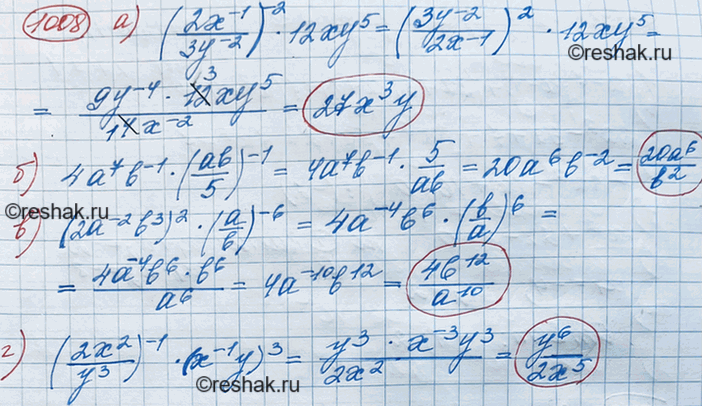 1008 а) (2x⁻¹/3y⁻²)⁻² · 12xy⁵ = (3y⁻²/2x⁻¹)² · 12xy⁵ =
= 9y⁻⁴ · 12 3 xy⁵ / 1 4x⁻² = 27x³y
б) 4a⁷b⁻¹ · (ab/5)⁻¹ = 4a⁷b⁻¹ · 5/ab = 20a⁶b⁻² = 20a⁶/b²
в) (2a⁻²b³)² · (a/b)⁻⁶ = 4a⁻⁴b⁶ · (b/a)⁶ =
= 4a⁻⁴b⁶ · b⁶/a⁶ = 4a⁻¹⁰b¹² = 4b¹²/a¹⁰
г) (2x²/y³)⁻¹ · (x⁻¹y)³ = y³ · x⁻³y³/2x² = y⁶/2x⁵
©reshak.ru
©reshak.ru
©reshak.ru
©reshak.ru